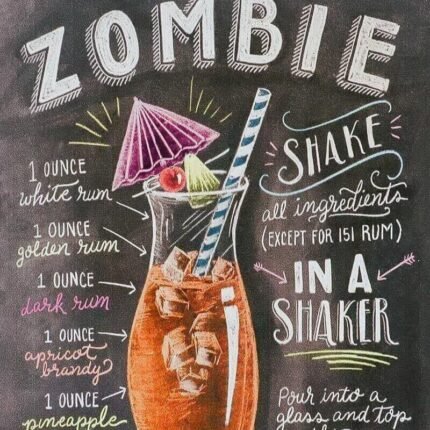 ZOMBIE
1 OUNCE
white rum
1 OUNCE
golden rum
1 OUNCE
dark rum
1 OUNCE
apricot
brandy
1 OUNCE
pineapple
SHAKE
all ingredients
(EXCEPT FOR 151 RUM)
IN A
SHAKER
Pour into a
glass and top